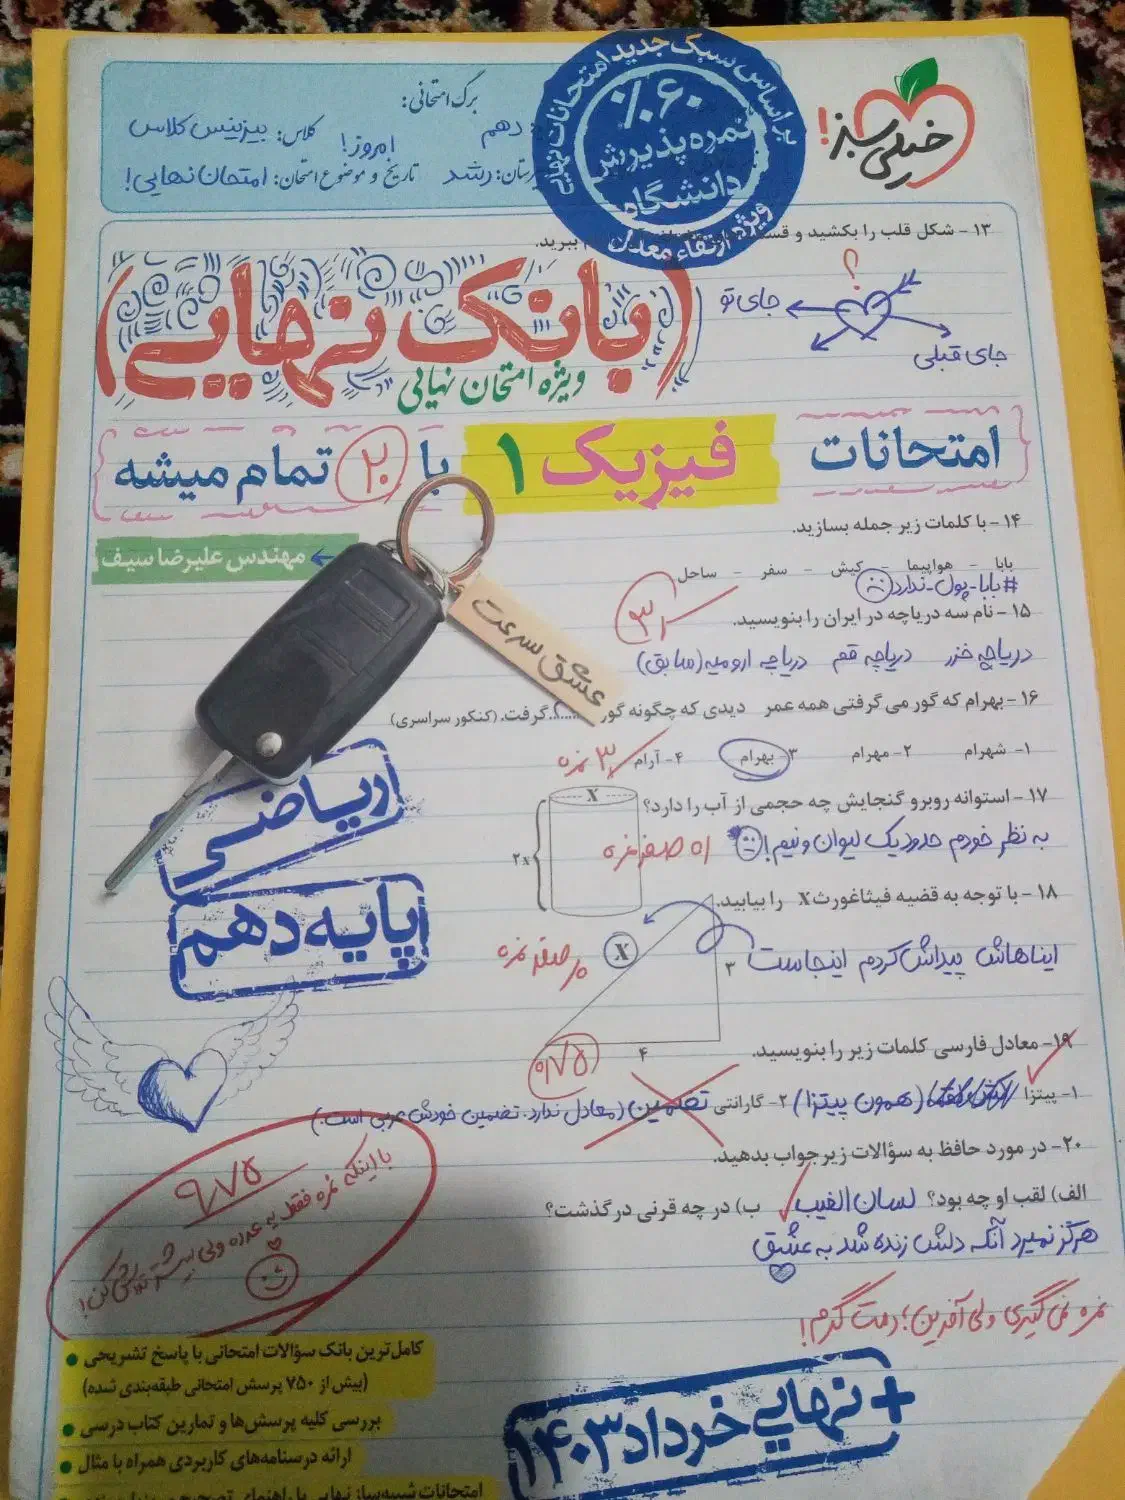 خیلی سبز!
براساس سبک جدید امتحانات نهایی
۶۰٪
نمره پذیرش
دانشگاه
ویژه ارتقاء معدل
برگ امتحانی:
دهم
امروز!
کلاس: بیزینس کلاس
رشد
تاریخ و موضوع امتحان: امتحان نهایی!
۱۳- شکل قلب را بکشید و
ببرید.
؟
جای تو
جای قبلی
(بانک نهایی)
ویژه امتحان نهایی
امتحانات فیزیک ۱ با ۲۰ تمام میشه
مهندس علیرضا سیف
۱۴- با کلمات زیر جمله بسازید.
بابا - هواپیما - کیش - سفر - ساحل
#بابا-پول-ندارد
۱۵- نام سه دریاچه در ایران را بنویسید.
دریاچه خزر دریاچه قم دریاچه ارومیه (سابق)
عشق سرعت
۱۶- بهرام که گور می گرفتی همه عمر دیدی که چگونه گور ......؟ گرفت. (کنکور سراسری)
۱- شهرام ۲- مهرام ۳- بهرام ۴- آرام
۳ نمره
۱۷- استوانه روبرو گنجایش چه حجمی از آب را دارد؟
X
۲x
به نظر خودم حدود یک لیوان و نیم!
صفر نمره
ریاضی
پایه دهم
۱۸- با توجه به قضیه فیثاغورث X را بیابید.
ایناهاش پیداش کردم اینجاست
X
۳
۴
صفر نمره
۱۹- معادل فارسی کلمات زیر را بنویسید.
۹/۷۵
۱- پیتزا (همون پیتزا) ۲- گارانتی تضمین (معادل ندارد. تضمین خودش عربی است.)
۲۰- در مورد حافظ به سؤالات زیر جواب بدهید.
الف) لقب او چه بود؟ لسان الغیب ب) در چه قرنی درگذشت؟
هرگز نمیرد آنکه دلش زنده شد به عشق
نمره نمی گیری ولی آفرین؛ دمت گرم!
۹/۷۵
با اینکه نمره فقط یه عدده ولی بیشتر تلاش کن!
کامل‌ترین بانک سؤالات امتحانی با پاسخ تشریحی
(بیش از ۷۵۰ پرسش امتحانی طبقه‌بندی شده)
بررسی کلیه پرسش‌ها و تمارین کتاب درسی
ارائه درسنامه‌های کاربردی همراه با مثال
امتحانات شبیه‌ساز نهایی با راهنمای تصحیح
+ نهایی خرداد ۱۴۰۳